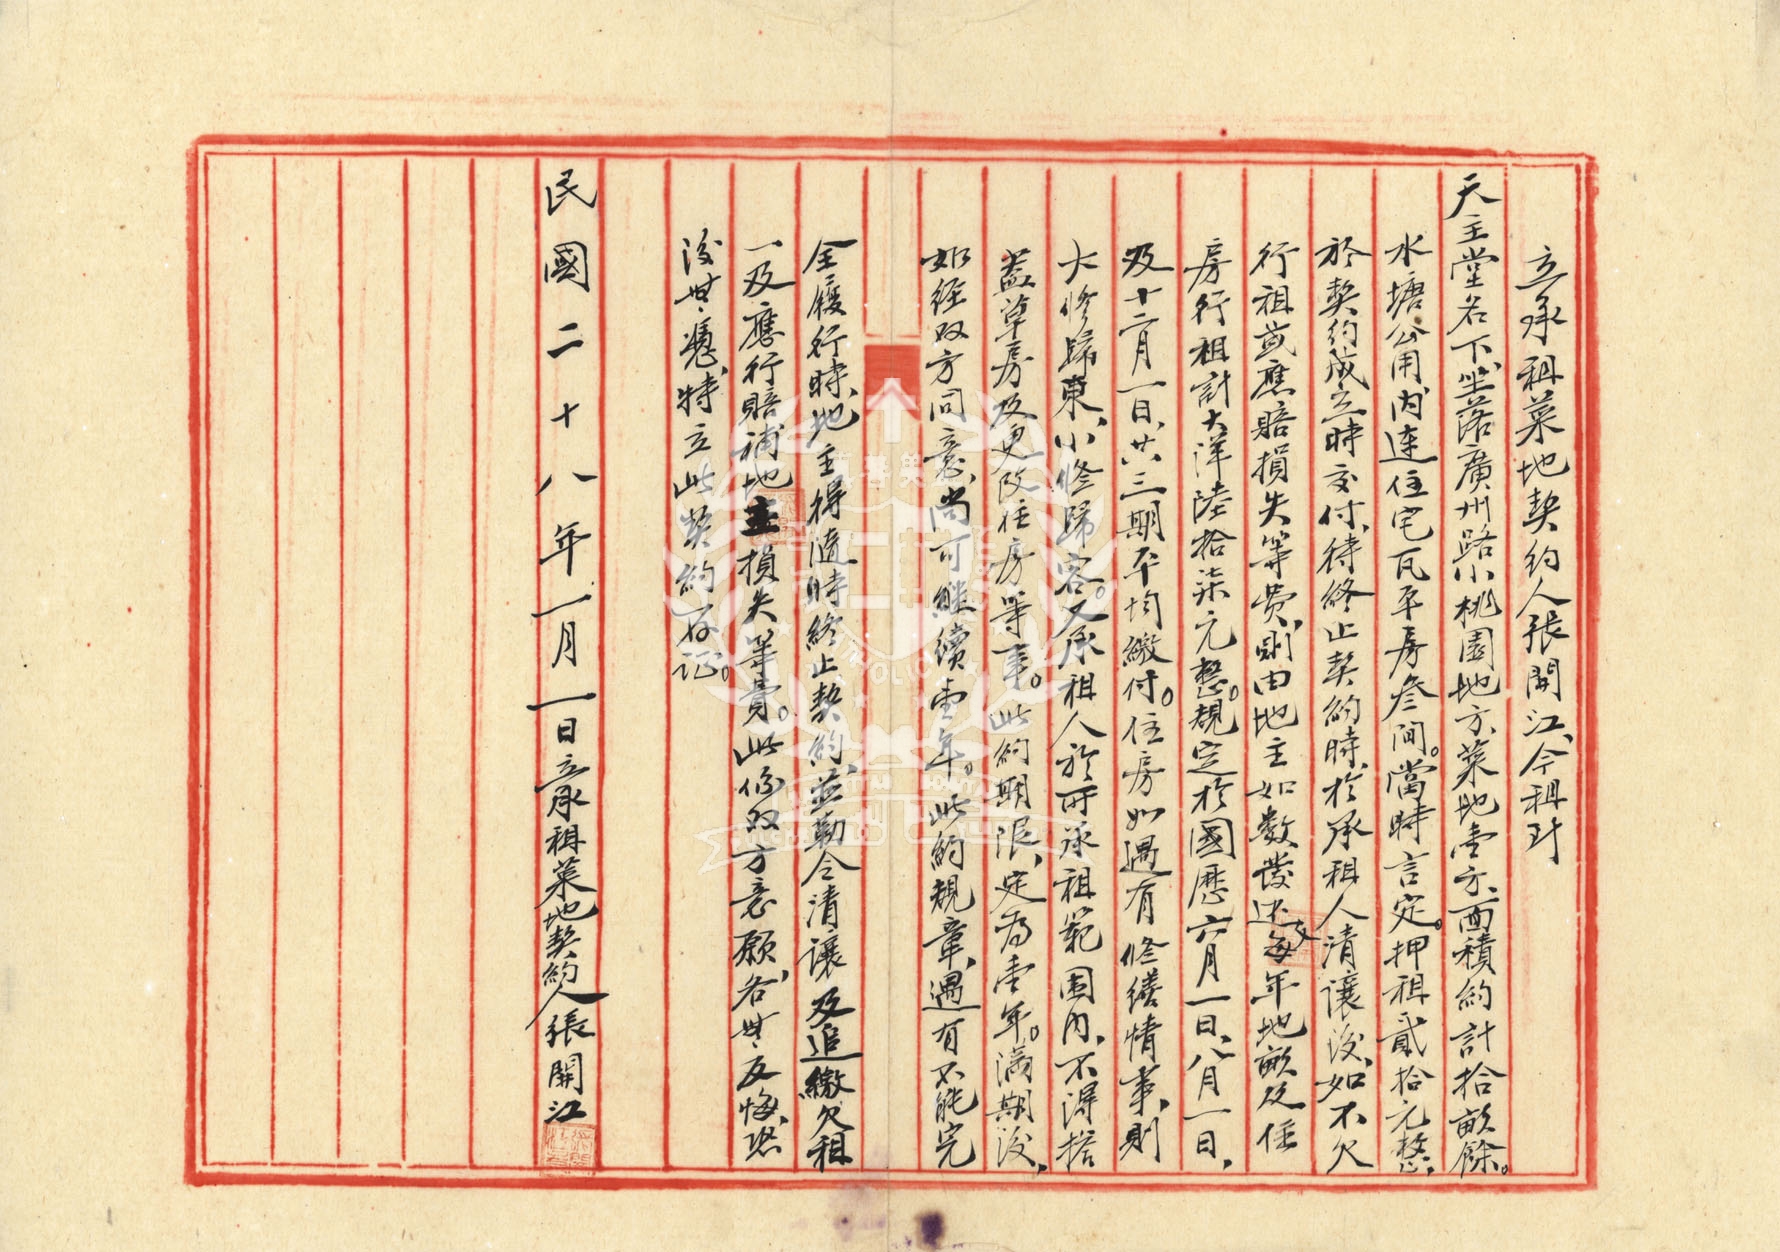 立承租菜地契約人張開江、今租到
天主堂名下、坐落廣州路小桃園地方、菜地壹方、面積約計拾畝餘。
水塘公用、內連住宅瓦平房叁间。當時言定。押租貳拾元整、
於契約成立時交付、待終止契約時、於承租人清讓後、如不欠
行租或應賠損失等費、則由地主如數發还、又每年地畝及住
房行租計大洋陸拾柒元整。規定於國歷六月一日、八月一日、
及十二月一日、共三期平均繳付。住房如遇有修繕情事、則
大修歸東、小修歸客。又承租人於所承租範围內、不得搭
蓋草房及更改住房等事。此約期限、定为壹年。滿期後、
如经双方同意、尚可継續壹年。此約規章、遇有不能完
全履行時、地主得随時終止契約、並勒令清讓及追繳欠租
一及應行賠補地主損失等費。此係双方意願、各無反悔、恐
後無憑、特立此契約存证。
民國二十八年一月一日立承租菜地契約人張開江